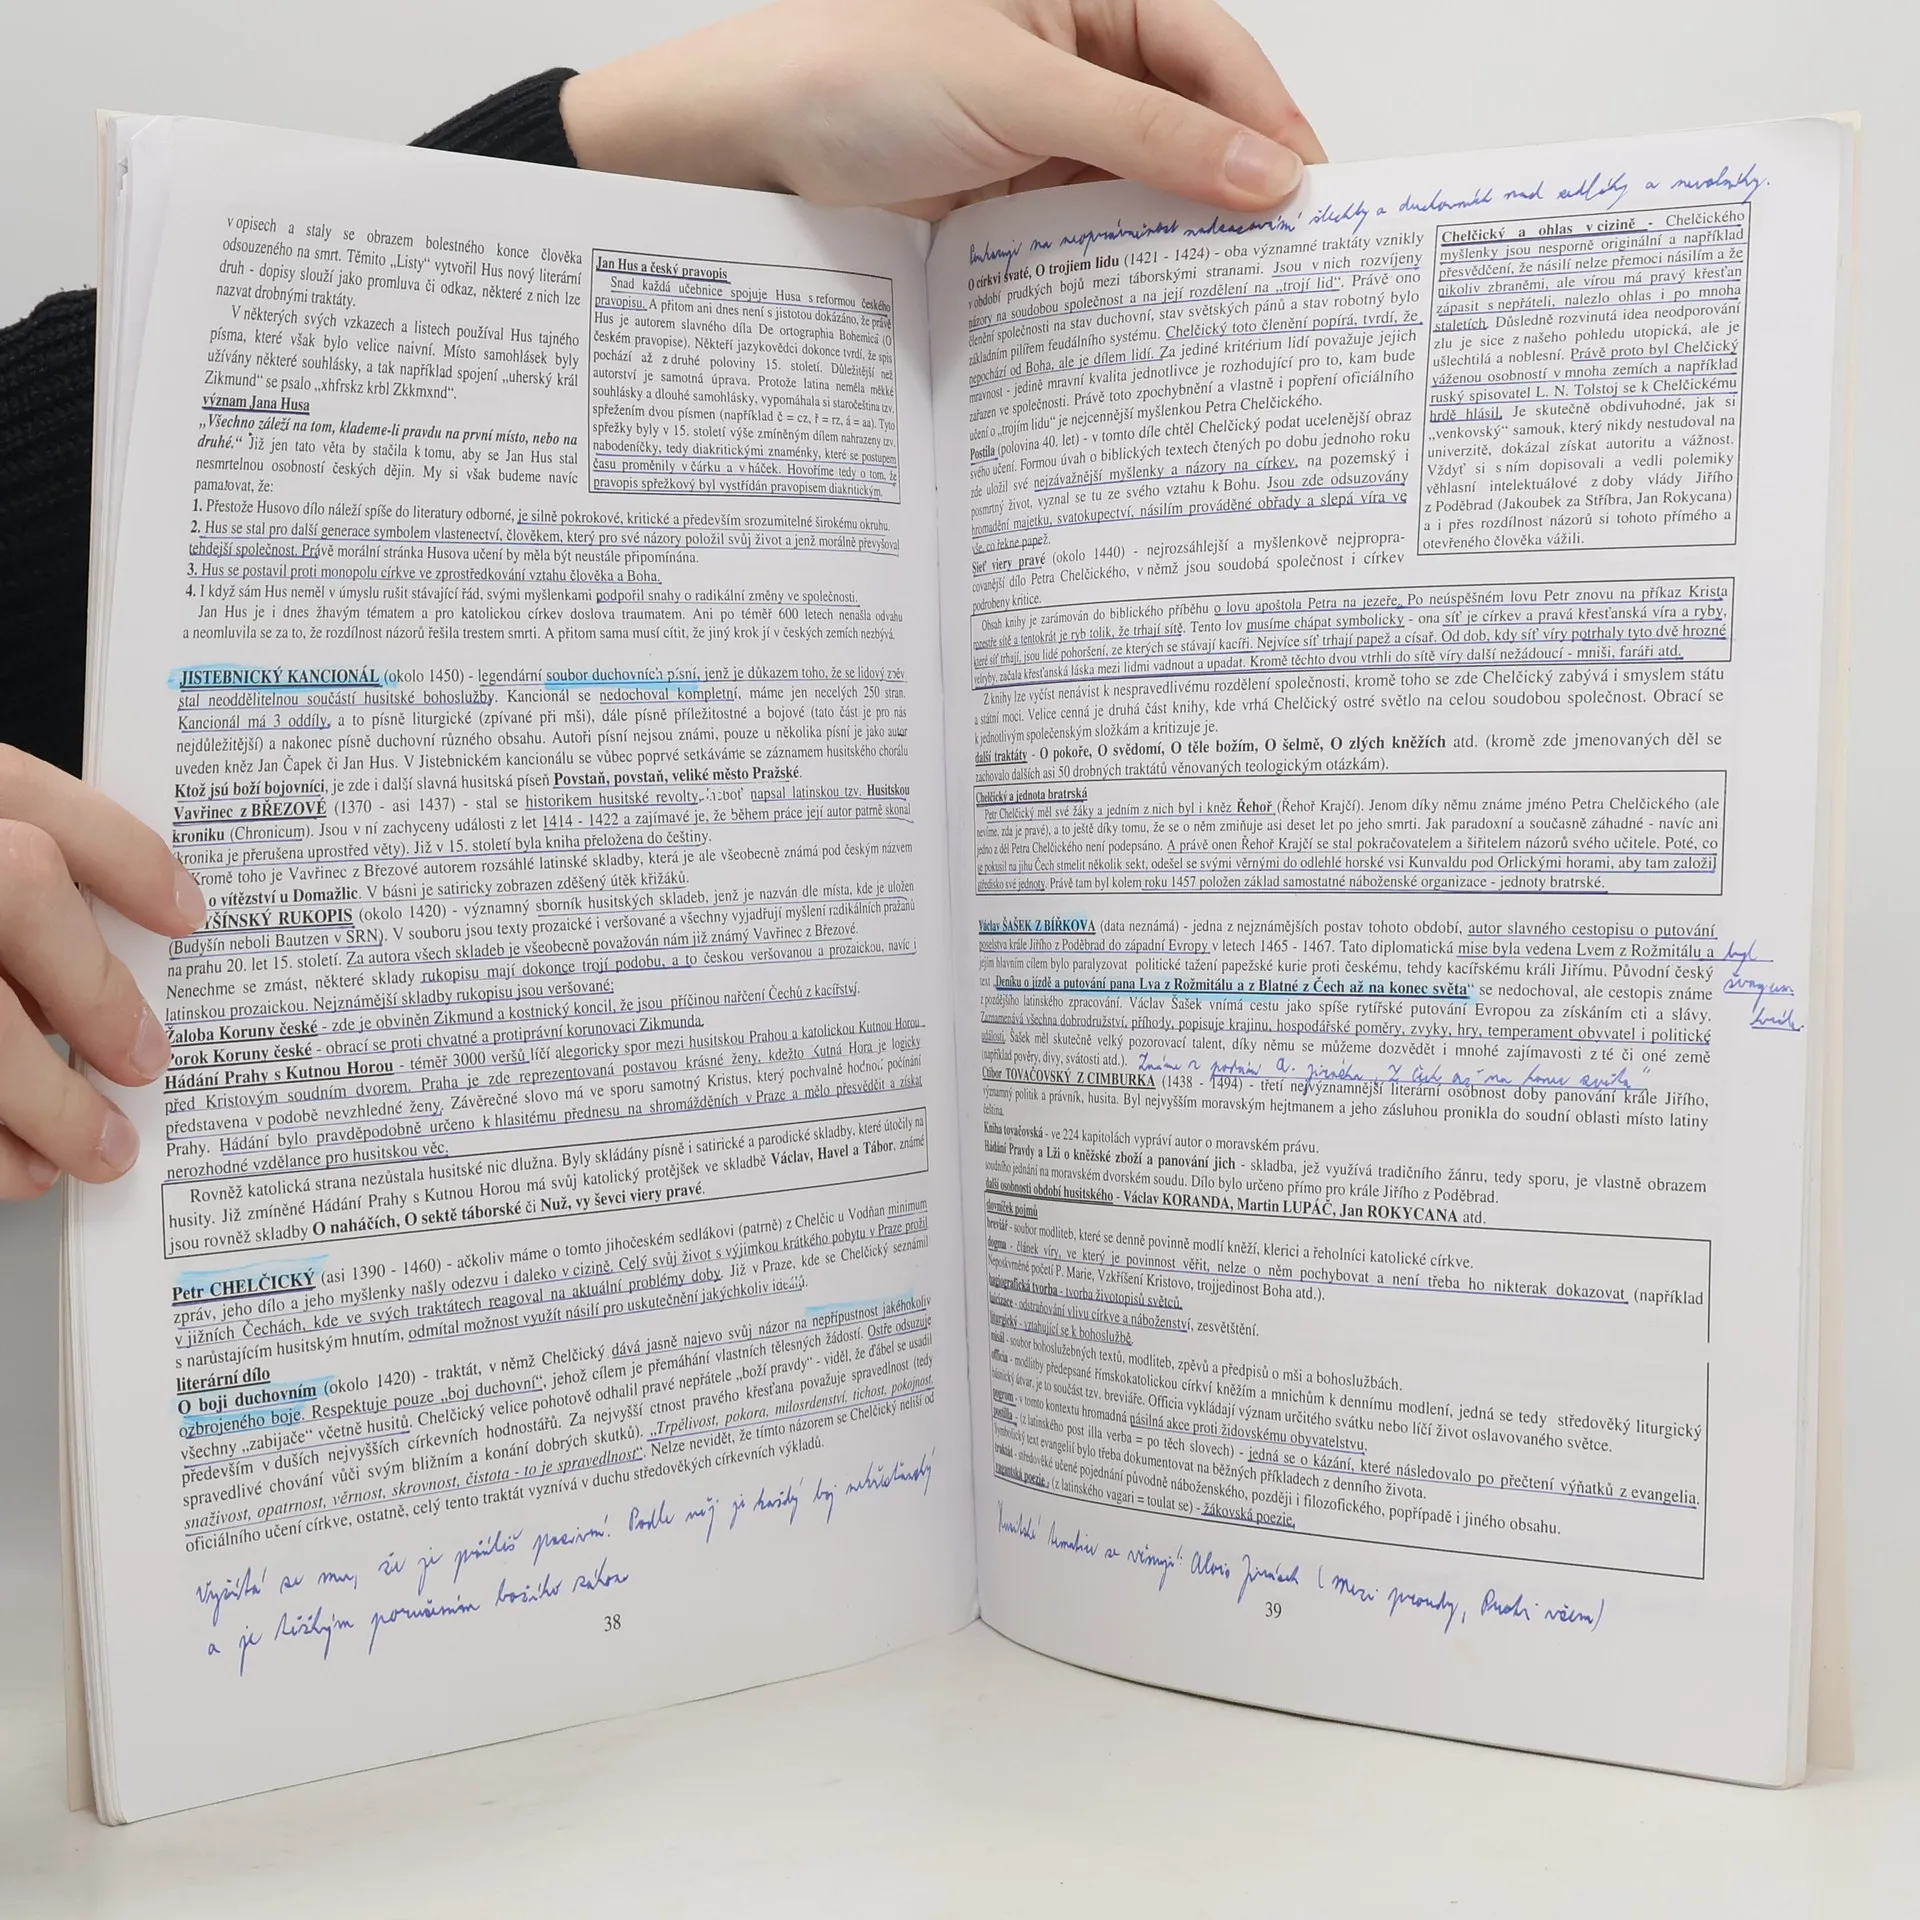 v opisech a staly se obrazem bolestného konce člověka
odsouzeného na smrt. Těmito „Listy“ vytvořil Hus nový literární
druh - dopisy slouží jako promluva či odkaz, některé z nich lze
nazvat drobnými traktáty.
V některých svých vzkazech a listech používal Hus tajného
písma, které však bylo velice naivní. Místo samohlásek byly
užívány některé souhlásky, a tak například spojení „uherský král
Zikmund“ se psalo „xhfrskz krbl Zkkmxnd“.
význam Jana Husa
„Všechno záleží na tom, klademe-li pravdu na první místo, nebo na
druhé.“ Již jen tato věta by stačila k tomu, aby se Jan Hus stal
nesmrtelnou osobností českých dějin. My si však budeme navíc
pamatovat, že:
Jan Hus a český pravopis
Snad každá učebnice spojuje Husa s reformou českého
pravopisu. A přitom ani dnes není s jistotou dokázáno, že právě
Hus je autorem slavného díla De ortographia Bohemica (O
českém pravopise). Někteří jazykovědci dokonce tvrdí, že spis
pochází až z druhé poloviny 15. století. Důležitější než
autorství je samotná úprava. Protože latina neměla měkké
souhlásky a dlouhé samohlásky, vypomáhala si staročeština tzv.
spřežením dvou písmen (například č = cz, ř = rz, á = aa). Tyto
spřežky byly v 15. století výše zmíněným dílem nahrazeny tzv.
nabodeníčky, tedy diakritickými znaménky, které se postupem
času proměnily v čárku a v háček. Hovoříme tedy o tom, že
pravopis spřežkový byl vystřídán pravopisem diakritickým.
1. Přestože Husovo dílo náleží spíše do literatury odborné, je silně pokrokové, kritické a především srozumitelné širokému okruhu.
2. Hus se stal pro další generace symbolem vlastenectví, člověkem, který pro své názory položil svůj život a jenž morálně převyšoval
tehdejší společnost. Právě morální stránka Husova učení by měla být neustále připomínána.
3. Hus se postavil proti monopolu církve ve zprostředkování vztahu člověka a Boha.
4. I když sám Hus neměl v úmyslu rušit stávající řád, svými myšlenkami podpořil snahy o radikální změny ve společnosti.
Jan Hus je i dnes žhavým tématem a pro katolickou církev doslova traumatem. Ani po téměř 600 letech nenašla odvahu
a neomluvila se za to, že rozdílnost názorů řešila trestem smrti. A přitom sama musí cítit, že jiný krok jí v českých zemích nezbývá.
JISTEBNICKÝ KANCIONÁL (okolo 1450) - legendární soubor duchovních písní, jenž je důkazem toho, že se lidový zpěv
stal neoddělitelnou součástí husitské bohoslužby. Kancionál se nedochoval kompletní, máme jen necelých 250 stran.
Kancionál má 3 oddíly, a to písně liturgické (zpívané při mši), dále písně příležitostné a bojové (tato část je pro nás
nejdůležitější) a nakonec písně duchovní různého obsahu. Autoři písní nejsou známi, pouze u několika písní je jako autor
uveden kněz Jan Čapek či Jan Hus. V Jistebnickém kancionálu se vůbec poprvé setkáváme se záznamem husitského chorálu
Ktož jsú boží bojovníci, je zde i další slavná husitská píseň Povstaň, povstaň, veliké město Pražské.
Vavřinec z BŘEZOVÉ (1370 - asi 1437) - stal se historikem husitské revolty, neboť napsal latinskou tzv. Husitskou
kroniku (Chronicum). Jsou v ní zachyceny události z let 1414 - 1422 a zajímavé je, že během práce její autor patrně skonal
(kronika je přerušena uprostřed věty). Již v 15. století byla kniha přeložena do češtiny.
Kromě toho je Vavřinec z Březové autorem rozsáhlé latinské skladby, která je ale všeobecně známá pod českým názvem
o vítězství u Domažlic. V básni je satiricky zobrazen zděšený útěk křižáků.
YŠÍNSKÝ RUKOPIS (okolo 1420) - významný sborník husitských skladeb, jenž je nazván dle místa, kde je uložen
(Budyšín neboli Bautzen v SRN). V souboru jsou texty prozaické i veršované a všechny vyjadřují myšlení radikálních pražanů
na prahu 20. let 15. století. Za autora všech skladeb je všeobecně považován nám již známý Vavřinec z Březové.
Nenechme se zmást, některé sklady rukopisu mají dokonce trojí podobu, a to českou veršovanou a prozaickou, navíc i
latinskou prozaickou. Nejznámější skladby rukopisu jsou veršované:
Žaloba Koruny české - zde je obviněn Zikmund a kostnický koncil, že jsou příčinou nařčení Čechů z kacířství.
Porok Koruny české - obrací se proti chvatné a protiprávní korunovaci Zikmunda.
Hádání Prahy s Kutnou Horou - téměř 3000 veršů líčí alegoricky spor mezi husitskou Prahou a katolickou Kutnou Horou
před Kristovým soudním dvorem. Praha je zde reprezentovaná postavou krásné ženy, kdežto Kutná Hora je logicky
představena v podobě nevzhledné ženy. Závěrečné slovo má ve sporu samotný Kristus, který pochvalně hodnotí počínání
Prahy. Hádání bylo pravděpodobně určeno k hlasitému přednesu na shromážděních v Praze a mělo přesvědčit a získat
nerozhodné vzdělance pro husitskou věc.
Rovněž katolická strana nezůstala husitské nic dlužna. Byly skládány písně i satirické a parodické skladby, které útočily na
husity. Již zmíněné Hádání Prahy s Kutnou Horou má svůj katolický protějšek ve skladbě Václav, Havel a Tábor, známé
jsou rovněž skladby O naháčích, O sektě táborské či Nuž, vy ševci viery pravé.
Petr CHELČICKÝ (asi 1390 - 1460) - ačkoliv máme o tomto jihočeském sedlákovi (patrně) z Chelčic u Vodňan minimum
zpráv, jeho dílo a jeho myšlenky našly odezvu i daleko v cizině. Celý svůj život s výjimkou krátkého pobytu v Praze prožil
v jižních Čechách, kde ve svých traktátech reagoval na aktuální problémy doby. Již v Praze, kde se Chelčický seznámil
s narůstajícím husitským hnutím, odmítal možnost využít násilí pro uskutečnění jakýchkoliv ideálů.
literární dílo
O boji duchovním (okolo 1420) - traktát, v němž Chelčický dává jasně najevo svůj názor na nepřípustnost jakéhokoliv
ozbrojeného boje. Respektuje pouze „boj duchovní“, jehož cílem je přemáhání vlastních tělesných žádostí. Ostře odsuzuje
všechny „zabijače“ včetně husitů. Chelčický velice pohotově odhalil pravé nepřátele „boží pravdy“ - viděl, že ďábel se usadil
především v duších nejvyšších církevních hodnostářů. Za nejvyšší ctnost pravého křesťana považuje spravedlnost (tedy
spravedlivé chování vůči svým bližním a konání dobrých skutků). „Trpělivost, pokora, milosrdenství, tichost, pokojnost,
snaživost, opatrnost, věrnost, skrovnost, čistota - to je spravedlnost“. Nelze nevidět, že tímto názorem se Chelčický neliší od
oficiálního učení církve, ostatně, celý tento traktát vyznívá v duchu středověkých církevních výkladů.
Vyčítá se mu, že je příliš pasivní. Podle něj je každý boj nekřesťanský
a je těžkým porušením božího zákona
38
Poukazuje na neoprávněnost nadřazování šlechty a duchovních nad sedláky a nevolníky.
O církvi svaté, O trojiem lidu (1421 - 1424) - oba významné traktáty vznikly
v období prudkých bojů mezi táborskými stranami. Jsou v nich rozvíjeny
názory na soudobou společnost a na její rozdělení na „trojí lid“. Právě ono
členění společnosti na stav duchovní, stav světských pánů a stav robotný bylo
základním pilířem feudálního systému. Chelčický toto členění popírá, tvrdí, že
nepochází od Boha, ale je dílem lidí. Za jediné kritérium lidí považuje jejich
mravnost - jedině mravní kvalita jednotlivce je rozhodující pro to, kam bude
zařazen ve společnosti. Právě toto zpochybnění a vlastně i popření oficiálního
učení o „trojím lidu“ je nejcennější myšlenkou Petra Chelčického.
Postila (polovina 40. let) - v tomto díle chtěl Chelčický podat ucelenější obraz
svého učení. Formou úvah o biblických textech čtených po dobu jednoho roku
zde uložil své nejzávažnější myšlenky a názory na církev, na pozemský i
posmrtný život, vyznal se tu ze svého vztahu k Bohu. Jsou zde odsuzovány
hromadění majetku, svatokupectví, násilím prováděné obřady a slepá víra ve
vše, co řekne papež.
Sieť viery pravé (okolo 1440) - nejrozsáhlejší a myšlenkově nejpropra-
covanější dílo Petra Chelčického, v němž jsou soudobá společnost i církev
podrobeny kritice.
Chelčický a ohlas v cizině - Chelčického
myšlenky jsou nesporně originální a například
přesvědčení, že násilí nelze přemoci násilím a že
nikoliv zbraněmi, ale vírou má pravý křesťan
zápasit s nepřáteli, nalezlo ohlas i po mnoha
staletích. Důsledně rozvinutá idea neodporování
zlu je sice z našeho pohledu utopická, ale je
ušlechtilá a noblesní. Právě proto byl Chelčický
váženou osobností v mnoha zemích a například
ruský spisovatel L. N. Tolstoj se k Chelčickému
hrdě hlásil. Je skutečně obdivuhodné, jak si
„venkovský“ samouk, který nikdy nestudoval na
univerzitě, dokázal získat autoritu a vážnost.
Vždyť si s ním dopisovali a vedli polemiky
věhlasní intelektuálové z doby vlády Jiřího
z Poděbrad (Jakoubek za Stříbra, Jan Rokycana)
a i přes rozdílnost názorů si tohoto přímého a
otevřeného člověka vážili.
Obsah knihy je zarámován do biblického příběhu o lovu apoštola Petra na jezeře. Po neúspěšném lovu Petr znovu na příkaz Krista
rozestře sítě a tentokrát je ryb tolik, že trhají sítě. Tento lov musíme chápat symbolicky - ona síť je církev a pravá křesťanská víra a ryby,
které síť trhají, jsou lidé pohoršení, ze kterých se stávají kacíři. Nejvíce síť trhají papež a císař. Od dob, kdy síť víry potrhaly tyto dvě hrozné
velryby, začala křesťanská láska mezi lidmi vadnout a upadat. Kromě těchto dvou vtrhli do sítě víry další nežádoucí - mniši, faráři atd.
Z knihy lze vyčíst nenávist k nespravedlivému rozdělení společnosti, kromě toho se zde Chelčický zabývá i smyslem státu
a státní moci. Velice cenná je druhá část knihy, kde vrhá Chelčický ostré světlo na celou soudobou společnost. Obrací se
k jednotlivým společenským složkám a kritizuje je.
další traktáty - O pokoře, O svědomí, O těle božím, O šelmě, O zlých kněžích atd. (kromě zde jmenovaných děl se
zachovalo dalších asi 50 drobných traktátů věnovaných teologickým otázkám).
Chelčický a jednota bratrská
Petr Chelčický měl své žáky a jedním z nich byl i kněz Řehoř (Řehoř Krajčí). Jenom díky němu známe jméno Petra Chelčického (ale
nevíme, zda je pravé), a to ještě díky tomu, že se o něm zmiňuje asi deset let po jeho smrti. Jak paradoxní a současně záhadné - navíc ani
jedno z děl Petra Chelčického není podepsáno. A právě onen Řehoř Krajčí se stal pokračovatel a šiřitelem názorů svého učitele. Poté, co
se pokusil na jihu Čech stmelit několik sekt, odešel se svými věrnými do odlehlé horské vsi Kunvaldu pod Orlickými horami, aby tam založil
středisko své jednoty. Právě tam byl kolem roku 1457 položen základ samostatné náboženské organizace - jednoty bratrské.
Václav ŠAŠEK Z BÍŘKOVA (data neznámá) - jedna z nejznámějších postav tohoto období, autor slavného cestopisu o putování
poselstva krále Jiřího z Poděbrad do západní Evropy v letech 1465 - 1467. Tato diplomatická mise byla vedena Lvem z Rožmitálu a
byl
švagrem
krále.
jejím hlavním cílem bylo paralyzovat politické tažení papežské kurie proti českému, tehdy kacířskému králi Jiřímu. Původní český
text „Deníku o jízdě a putování pana Lva z Rožmitálu a z Blatné z Čech až na konec světa“ se nedochoval, ale cestopis známe
z pozdějšího latinského zpracování. Václav Šašek vnímá cestu jako spíše rytířské putování Evropou za získáním cti a slávy.
Zaznamenává všechna dobrodružství, příhody, popisuje krajinu, hospodářské poměry, zvyky, hry, temperament obyvatel i politické
události. Šašek měl skutečně velký pozorovací talent, díky němu se můžeme dozvědět i mnohé zajímavosti z té či oné země
(například pověry, divy, svátosti atd.). Známe z podání A. Jiráska „Z Čech až na konec světa“
Ctibor TOVAČOVSKÝ Z CIMBURKA (1438 - 1494) - třetí nejvýznamnější literární osobnost doby panování krále Jiřího,
významný politik a právník, husita. Byl nejvyšším moravským hejtmanem a jeho zásluhou pronikla do soudní oblasti místo latiny
čeština.
Kniha tovačovská - ve 224 kapitolách vypráví autor o moravském právu.
Hádání Pravdy a Lži o kněžské zboží a panování jich - skladba, jež využívá tradičního žánru, tedy sporu, je vlastně obrazem
soudního jednání na moravském dvorském soudu. Dílo bylo určeno přímo pro krále Jiřího z Poděbrad.
další osobnosti období husitského - Václav KORANDA, Martin LUPÁČ, Jan ROKYCANA atd.
slovníček pojmů
breviář - soubor modliteb, které se denně povinně modlí kněží, klerici a řeholníci katolické církve.
dogma - článek víry, ve který je povinnost věřit, nelze o něm pochybovat a není třeba ho nikterak dokazovat (například
Neposkvrněné početí P. Marie, Vzkříšení Kristovo, trojjedinost Boha atd.).
hagiografická tvorba - tvorba životopisů světců.
laicizace - odstraňování vlivu církve a náboženství, zesvětštění.
liturgický - vztahující se k bohoslužbě.
misál - soubor bohoslužebných textů, modliteb, zpěvů a předpisů o mši a bohoslužbách.
officia - modlitby předepsané římskokatolickou církví kněžím a mnichům k dennímu modlení, jedná se tedy středověký liturgický
básnický útvar, je to součást tzv. breviáře. Officia vykládají význam určitého svátku nebo líčí život oslavovaného světce.
pogrom - v tomto kontextu hromadná násilná akce proti židovskému obyvatelstvu.
postilla - (z latinského post illa verba = po těch slovech) - jedná se o kázání, které následovalo po přečtení výňatků z evangelia.
Symbolický text evangelií bylo třeba dokumentovat na běžných příkladech z denního života.
traktát - středověké učené pojednání původně náboženského, později i filozofického, popřípadě i jiného obsahu.
vagantská poezie - (z latinského vagari = toulat se) - žákovská poezie.
Husitské tematice se věnují: Alois Jirásek (Mezi proudy, Proti všem)
39